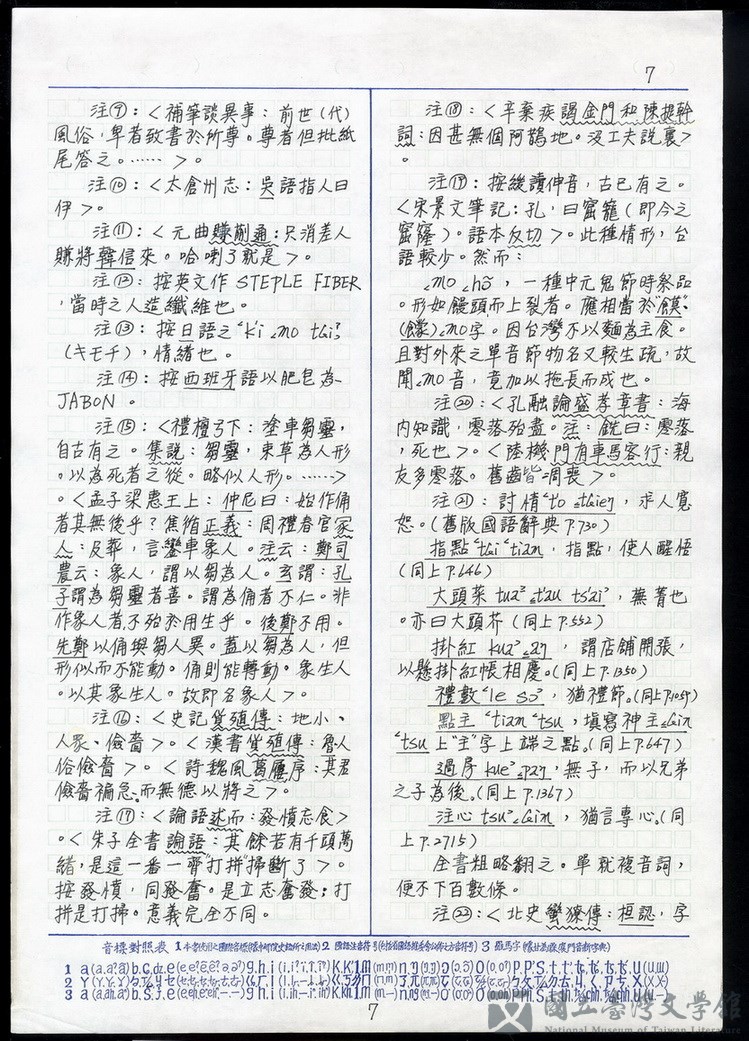 7
注⑨：＜補筆談異事：前世（代）
風俗，卑者致書於所尊。尊者但批紙
尾答之。……＞。
注⑩：＜太倉州志：吳語指人曰
伊＞。
注⑪：＜元曲賺蒯通：只消差人
賺將韓信來。哈喇了就是＞。
注⑫：按英文作 STEPLE FIBER
，當時之人造纖維也。
注⑬：按日語之
（キモチ），情緒也。
注⑭：按西班牙語以肥皂為
JABON。
注⑮：＜禮檀弓下：塗車芻靈，
自古有之。集說：芻靈，束草為人形
。以為死者之從。略似人形。……＞
。＜孟子梁惠王上：仲尼曰：始作俑
者其無後乎？焦循正義：周禮春官冢
人：及葬，言鸞車象人。注云：鄭司
農云：象人，謂以芻為人。玄謂：孔
子謂為芻靈者善。謂為俑者不仁。非
作象人者不殆於用生乎。後鄭不用。
先鄭以俑與芻人異。蓋以芻為人，但
形似而不能動。俑則能轉動。象生人
。以其象生人。故即名象人＞。
注⑯：＜史記貨殖傳：地小、
人眾、儉嗇＞。＜漢書貨殖傳：魯人
俗儉嗇＞。＜詩魏風葛屨序：其君
儉嗇褊急，而無德以將之＞。
注⑰：＜論語述而：發憤忘食＞
。＜朱子全書論語：其餘若有千頭萬
緒，是這一番一齊"打拼"掃斷了＞。
按發憤，同發奮。是立志奮發；打
拼是打掃。意義完全不同。
注⑱：＜辛棄疾謁金門和陳提幹
詞：因甚無個阿鵲地。沒工夫說裏＞
。
注⑲：按緩讀伸音，古已有之。
＜宋景文筆記：孔，曰窟籠（即今之
窟窿）。語本反切＞。此種情形，台
語較少。然而：
mo hõ，一種中元鬼節時祭品
。形如饅頭而上裂者。應相當於"饃"、
mo字。因台灣不以麵為主食。
且對外來之單音節物名又較生疏，故
聞mo音，竟加以拖長而成也。
注⑳：＜孔融論盛孝章書：海
內知識，零落殆盡。注：銑曰：零落
，死也＞。＜陸機門有車馬客行：親
友多零落。舊齒皆凋喪＞。
注㉑：討情，求人寬
恕。（舊版國語辭典P.730）
指點，指點，使人醒悟
（同上P.646）
大頭菜，蕪菁也
。亦曰大頭芥（同上P.552）
掛紅，謂店舖開張，
以懸掛紅帳相慶。（同上P.1350）
禮數，猶禮節。（同上P.1059）
點主，填寫神主
上"主"字上端之點。（同上P.647）
過房，無子，而以兄弟
之子為後。（同上P.1367）
注心，猶言專心。（同
上P.2715）
全書粗略翻之。單就複音詞，
便不下百數條。
注㉒：＜北史蠻獠傳：桓認，字
音標對照表
7
國立臺灣文學館
National Museum of Taiwan Literature